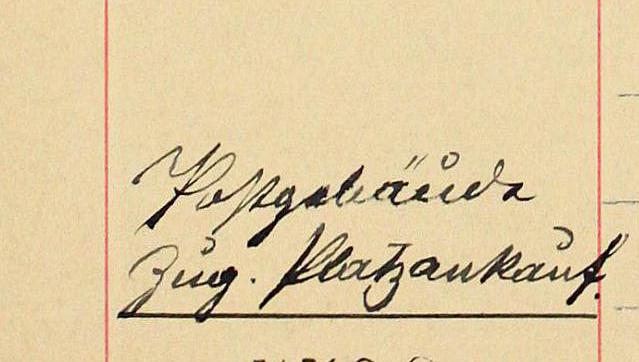 Postgebäude
Zug. Platzankauf.